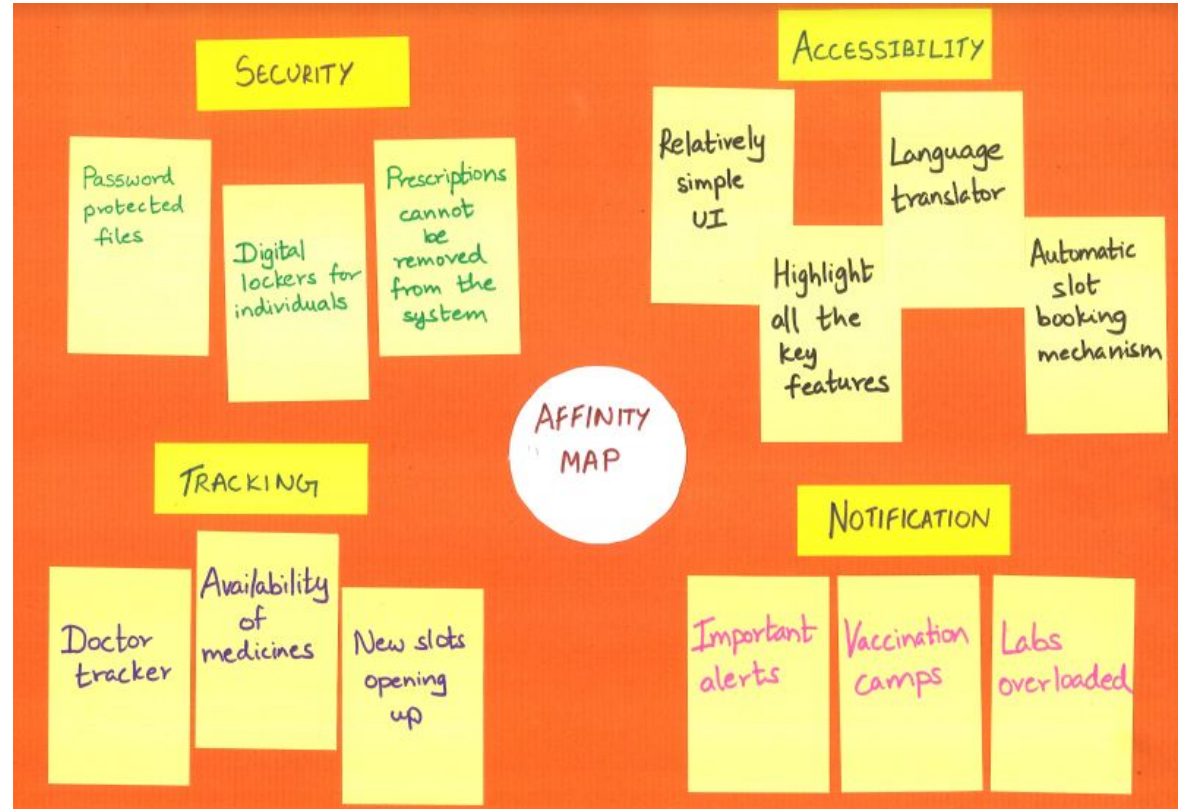 SECURITY
Password
protected
files
Digital
lockers for
individuals
Prescriptions
cannot
be
removed
from the
system
ACCESSIBILITY
Relatively
simple
UI
Highlight
all the
key
features
Language
translator
Automatic
slot
booking
mechanism
AFFINITY
MAP
TRACKING
Doctor
tracker
Availability
of
medicines
New slots
opening
up
NOTIFICATION
Important
alerts
Vaccination
camps
Labs
overloaded